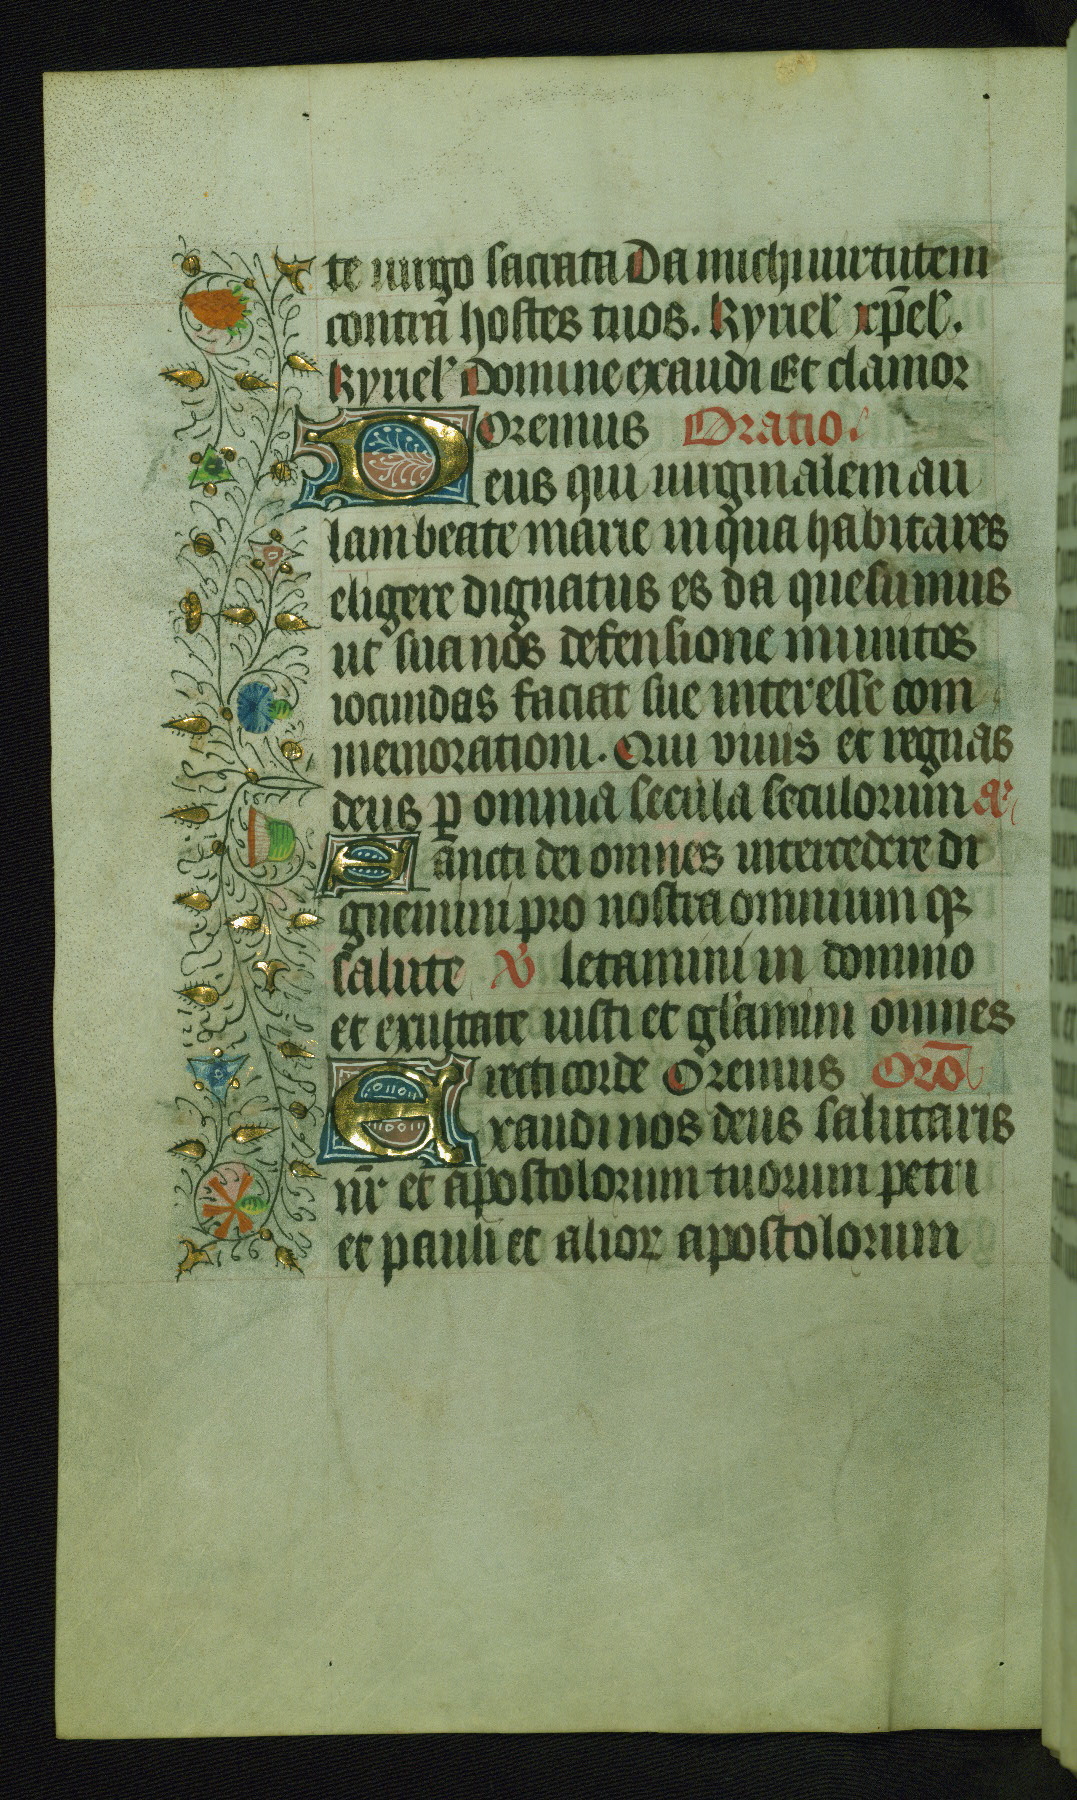 te uirgo sacrata Da michi uirtutem
contra hostes tuos. Kyriel' xp̄el'.
Kyriel' Domine exaudi Et clamor
Oremus Oratio.
Deus qui uirginalem au
lam beate marie in qua habitares
eligere dignatus es da quesumus
ut sua nos defensione munitos
iocundas faciat sue interesse com
memorationi. Qui viuis et regnas
deus p̲ omnia secula seculorum a
Sancti dei omnes intercedere di
gnemini pro nostra omnium q3
salute V̕ letamini in domino
et exultate iusti et gl'amini omnes
recti corde Oremus Orō
Exaudi nos deus salutaris
nr̄ et apostolorum tuorum petri
et pauli et alioꝝ apostolorum